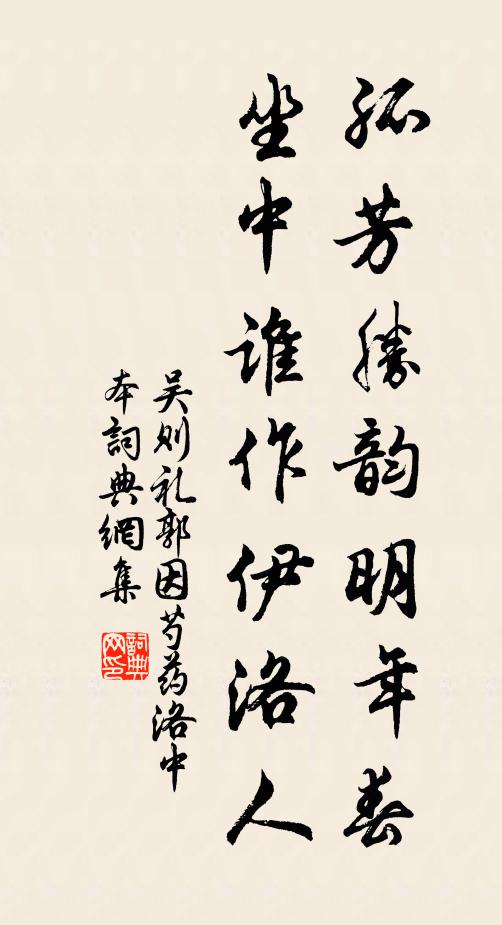 孤芳勝韵明年春
坐中谁作伊洛人
吴则礼郭因芍药洛中
本詞典網集
詞典網印